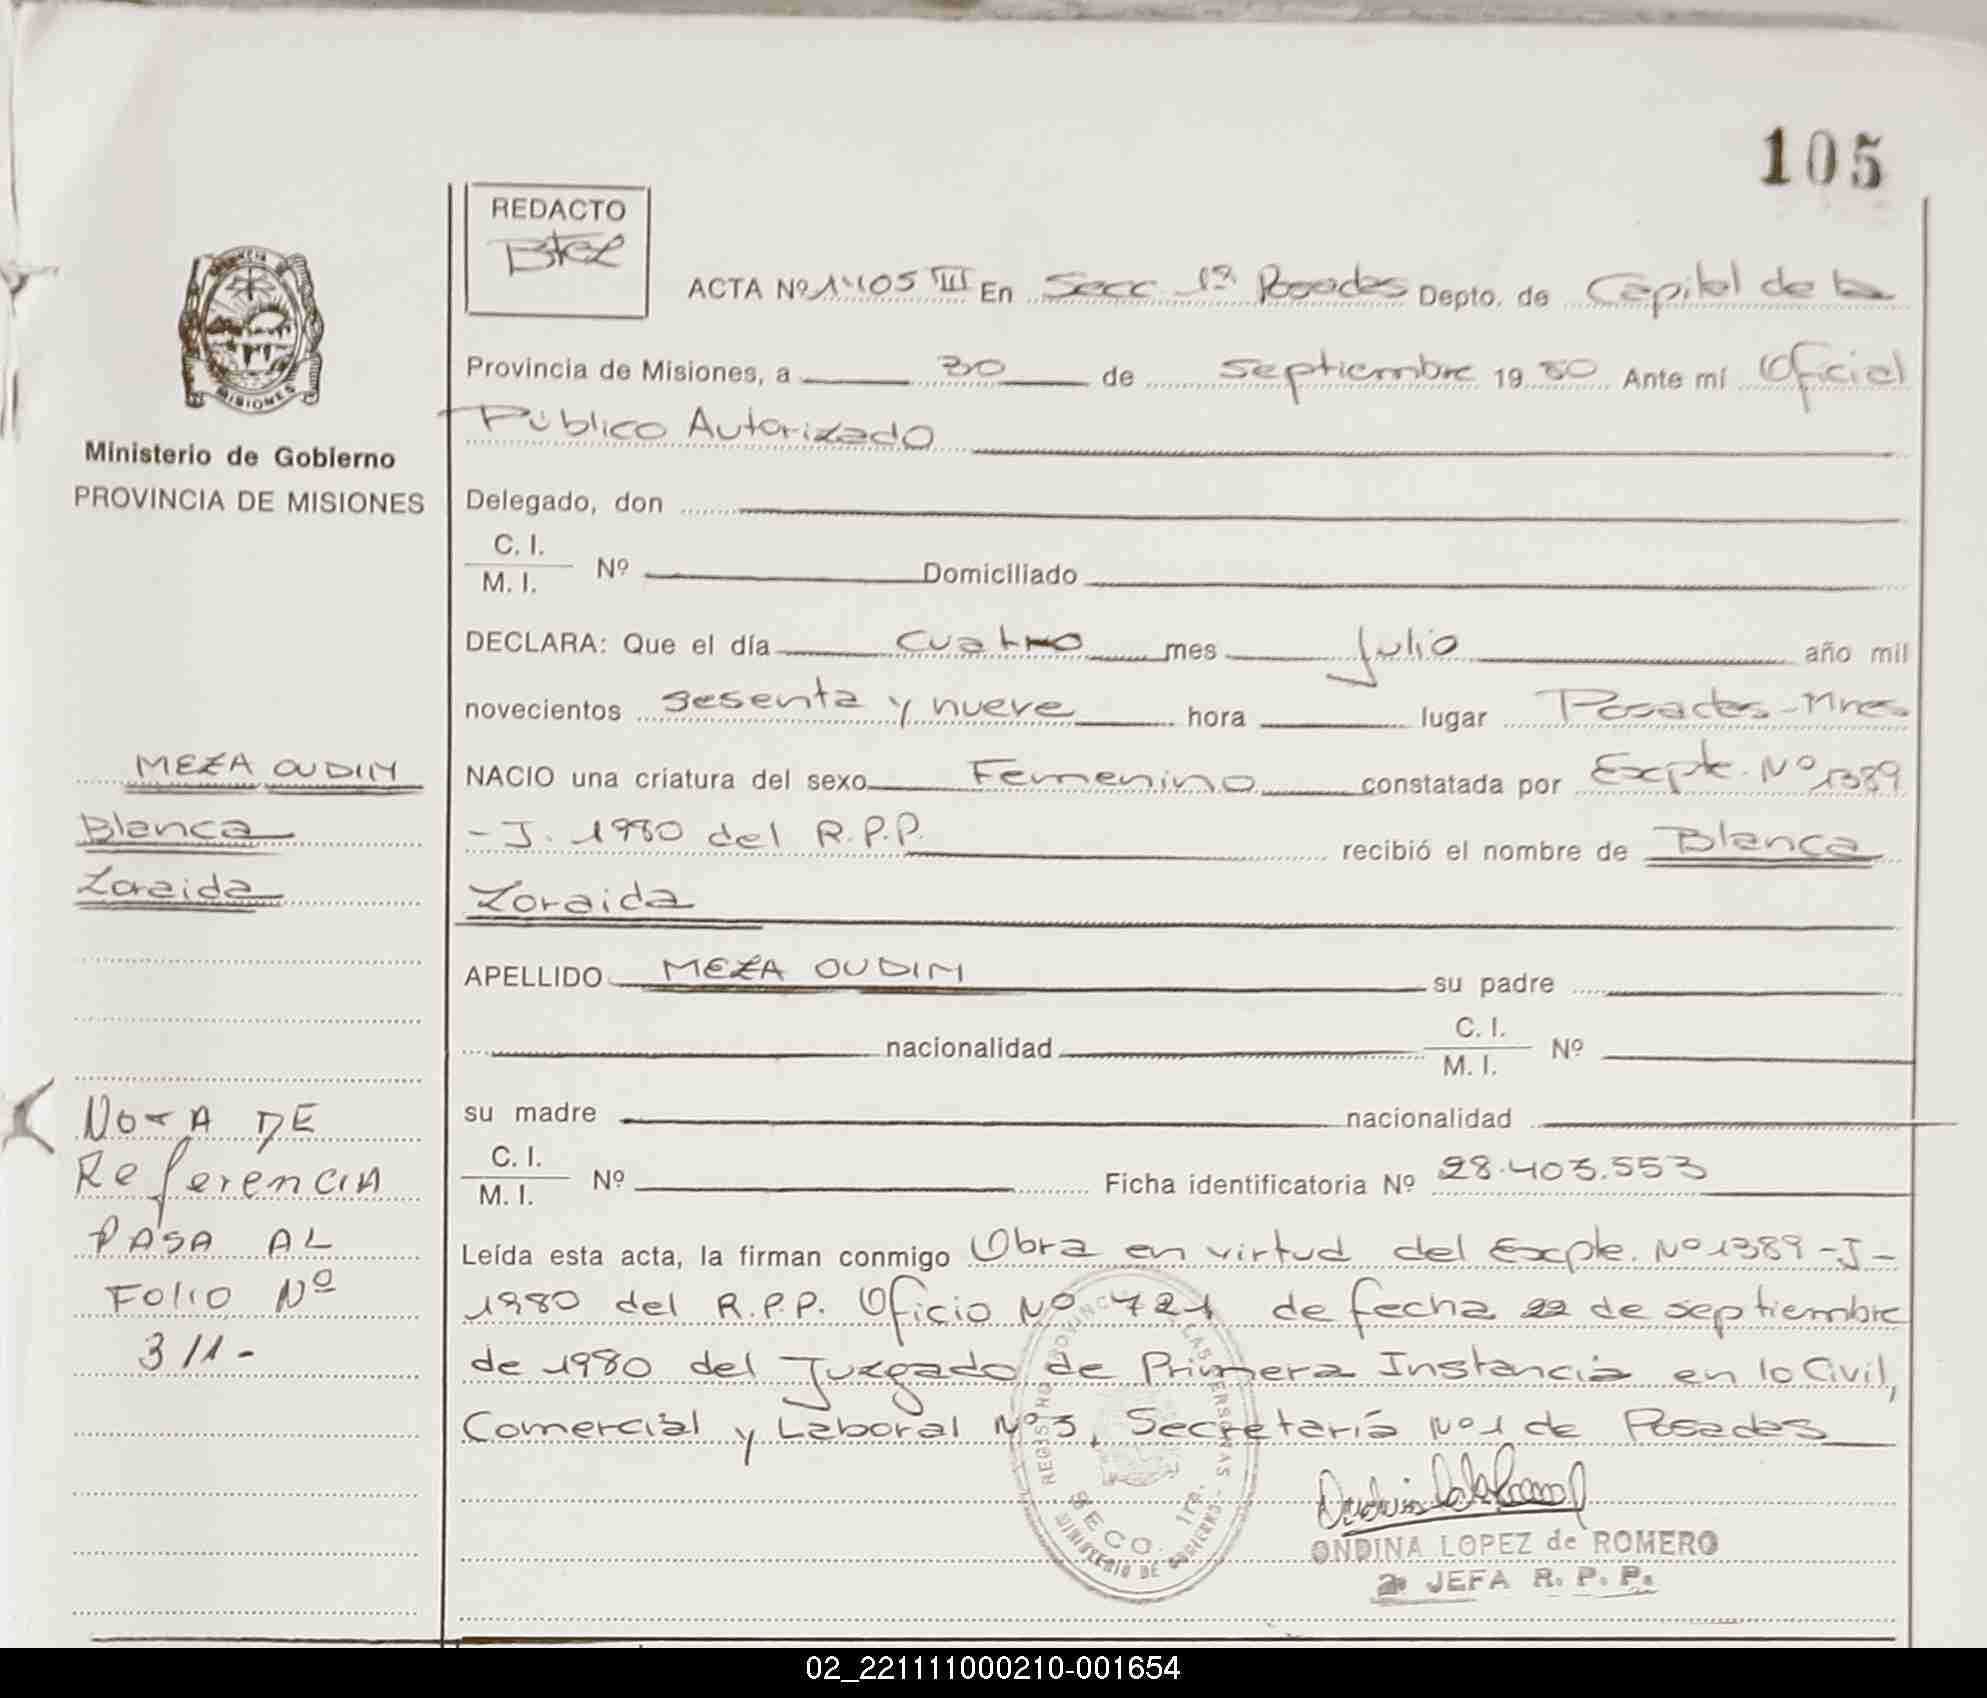 105
REDACTO
MISIONES
ACTA Nº 1405 III En Secc 1ª Posadas Depto. de Capital de la
Provincia de Misiones, a 30 de septiembre 1980 Ante mí Oficial
Público Autorizado
Ministerio de Gobierno
PROVINCIA DE MISIONES
Delegado, don
C. I.
M. I. Nº Domiciliado
DECLARA: Que el día cuatro mes julio año mil
novecientos sesenta y nueve hora lugar Posadas-Mnes
MEZA OUDIN
NACIO una criatura del sexo Femenino constatada por Expte. Nº 1389
Blanca
-J. 1980 del R.P.P. recibió el nombre de Blanca
Zoraida
Zoraida
APELLIDO MEZA OUDIN su padre
nacionalidad C. I.
M. I. Nº
NOTA DE
su madre nacionalidad
Referencia
C. I.
M. I. Nº Ficha identificatoria Nº 28.403.553
PASA AL
Leída esta acta, la firman conmigo Obra en virtud del Expte. Nº 1389-J-
FOLIO Nº
1980 del R.P.P. Oficio Nº 721 de fecha 22 de septiembre
311-
de 1980 del Juzgado de Primera Instancia en lo Civil,
Comercial y Laboral Nº 3, Secretaría Nº 1 de Posadas
SECC. 1ra.
MINISTERIO DE GOBIERNO.-
ONDINA LOPEZ de ROMERO
2ª JEFA R. P. P.
02_221111000210-001654